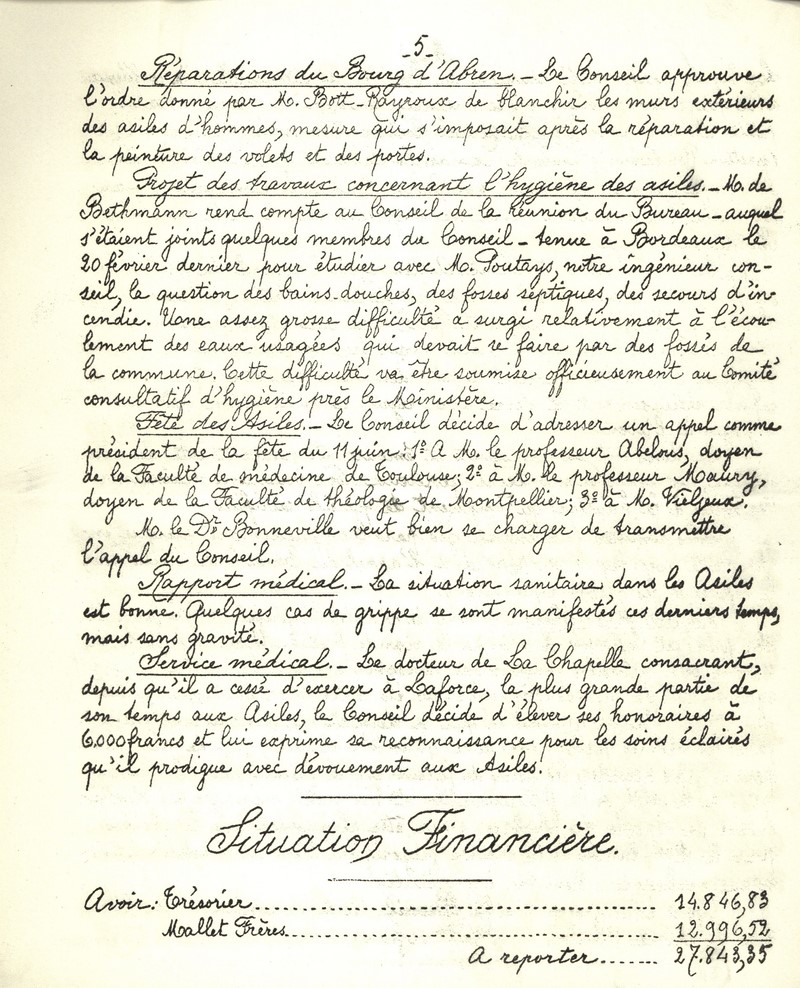 -5-
Réparations du Bourg d'Abren. - Le Conseil approuve
l'ordre donné par M. Bott-Rayroux de blanchir les murs extérieurs
des asiles d'hommes, mesure qui s'imposait après la réparation et
la peinture des volets et des portes.
Projet des travaux concernant l'hygiène des asiles. - M. de
Bethmann rend compte au Conseil de la réunion du Bureau - auquel
s'étaient joints quelques membres du Conseil - tenue à Bordeaux le
20 février dernier pour étudier avec M. Poutays, notre ingénieur con-
seil, la question des bains-douches, des fosses septiques, des secours d'in-
cendie. Une assez grosse difficulté a surgi relativement à l'écou-
lement des eaux usagées qui devait se faire par des fossés de
la commune. Cette difficulté va être soumise officieusement au Comité
consultatif d'hygiène près le Ministère.
Fête des Asiles. - Le Conseil décide d'adresser un appel comme
président de la fête du 11 juin: 1º A M. le professeur Abelous, doyen
de la Faculté de médecine de Toulouse; 2º à M. le professeur Maury,
doyen de la Faculté de théologie de Montpellier; 3º à M. Vieljeux.
M. le Dr Bonneville veut bien se charger de transmettre
l'appel du Conseil.
Rapport médical. - La situation sanitaire dans les Asiles
est bonne. Quelques cas de grippe se sont manifestés ces derniers temps,
mais sans gravité.
Service médical. - Le docteur de La Chapelle consacrant,
depuis qu'il a cessé d'exercer à Laforce, la plus grande partie de
son temps aux Asiles, le Conseil décide d'élever ses honoraires à
6.000 francs et lui exprime sa reconnaissance pour les soins éclairés
qu'il prodigue avec dévouement aux Asiles.
Situation Financière.
Avoir: Trésorier.................... 14.846,83
Mallet Frères.................... 12.996,52
A reporter....... 27.843,35